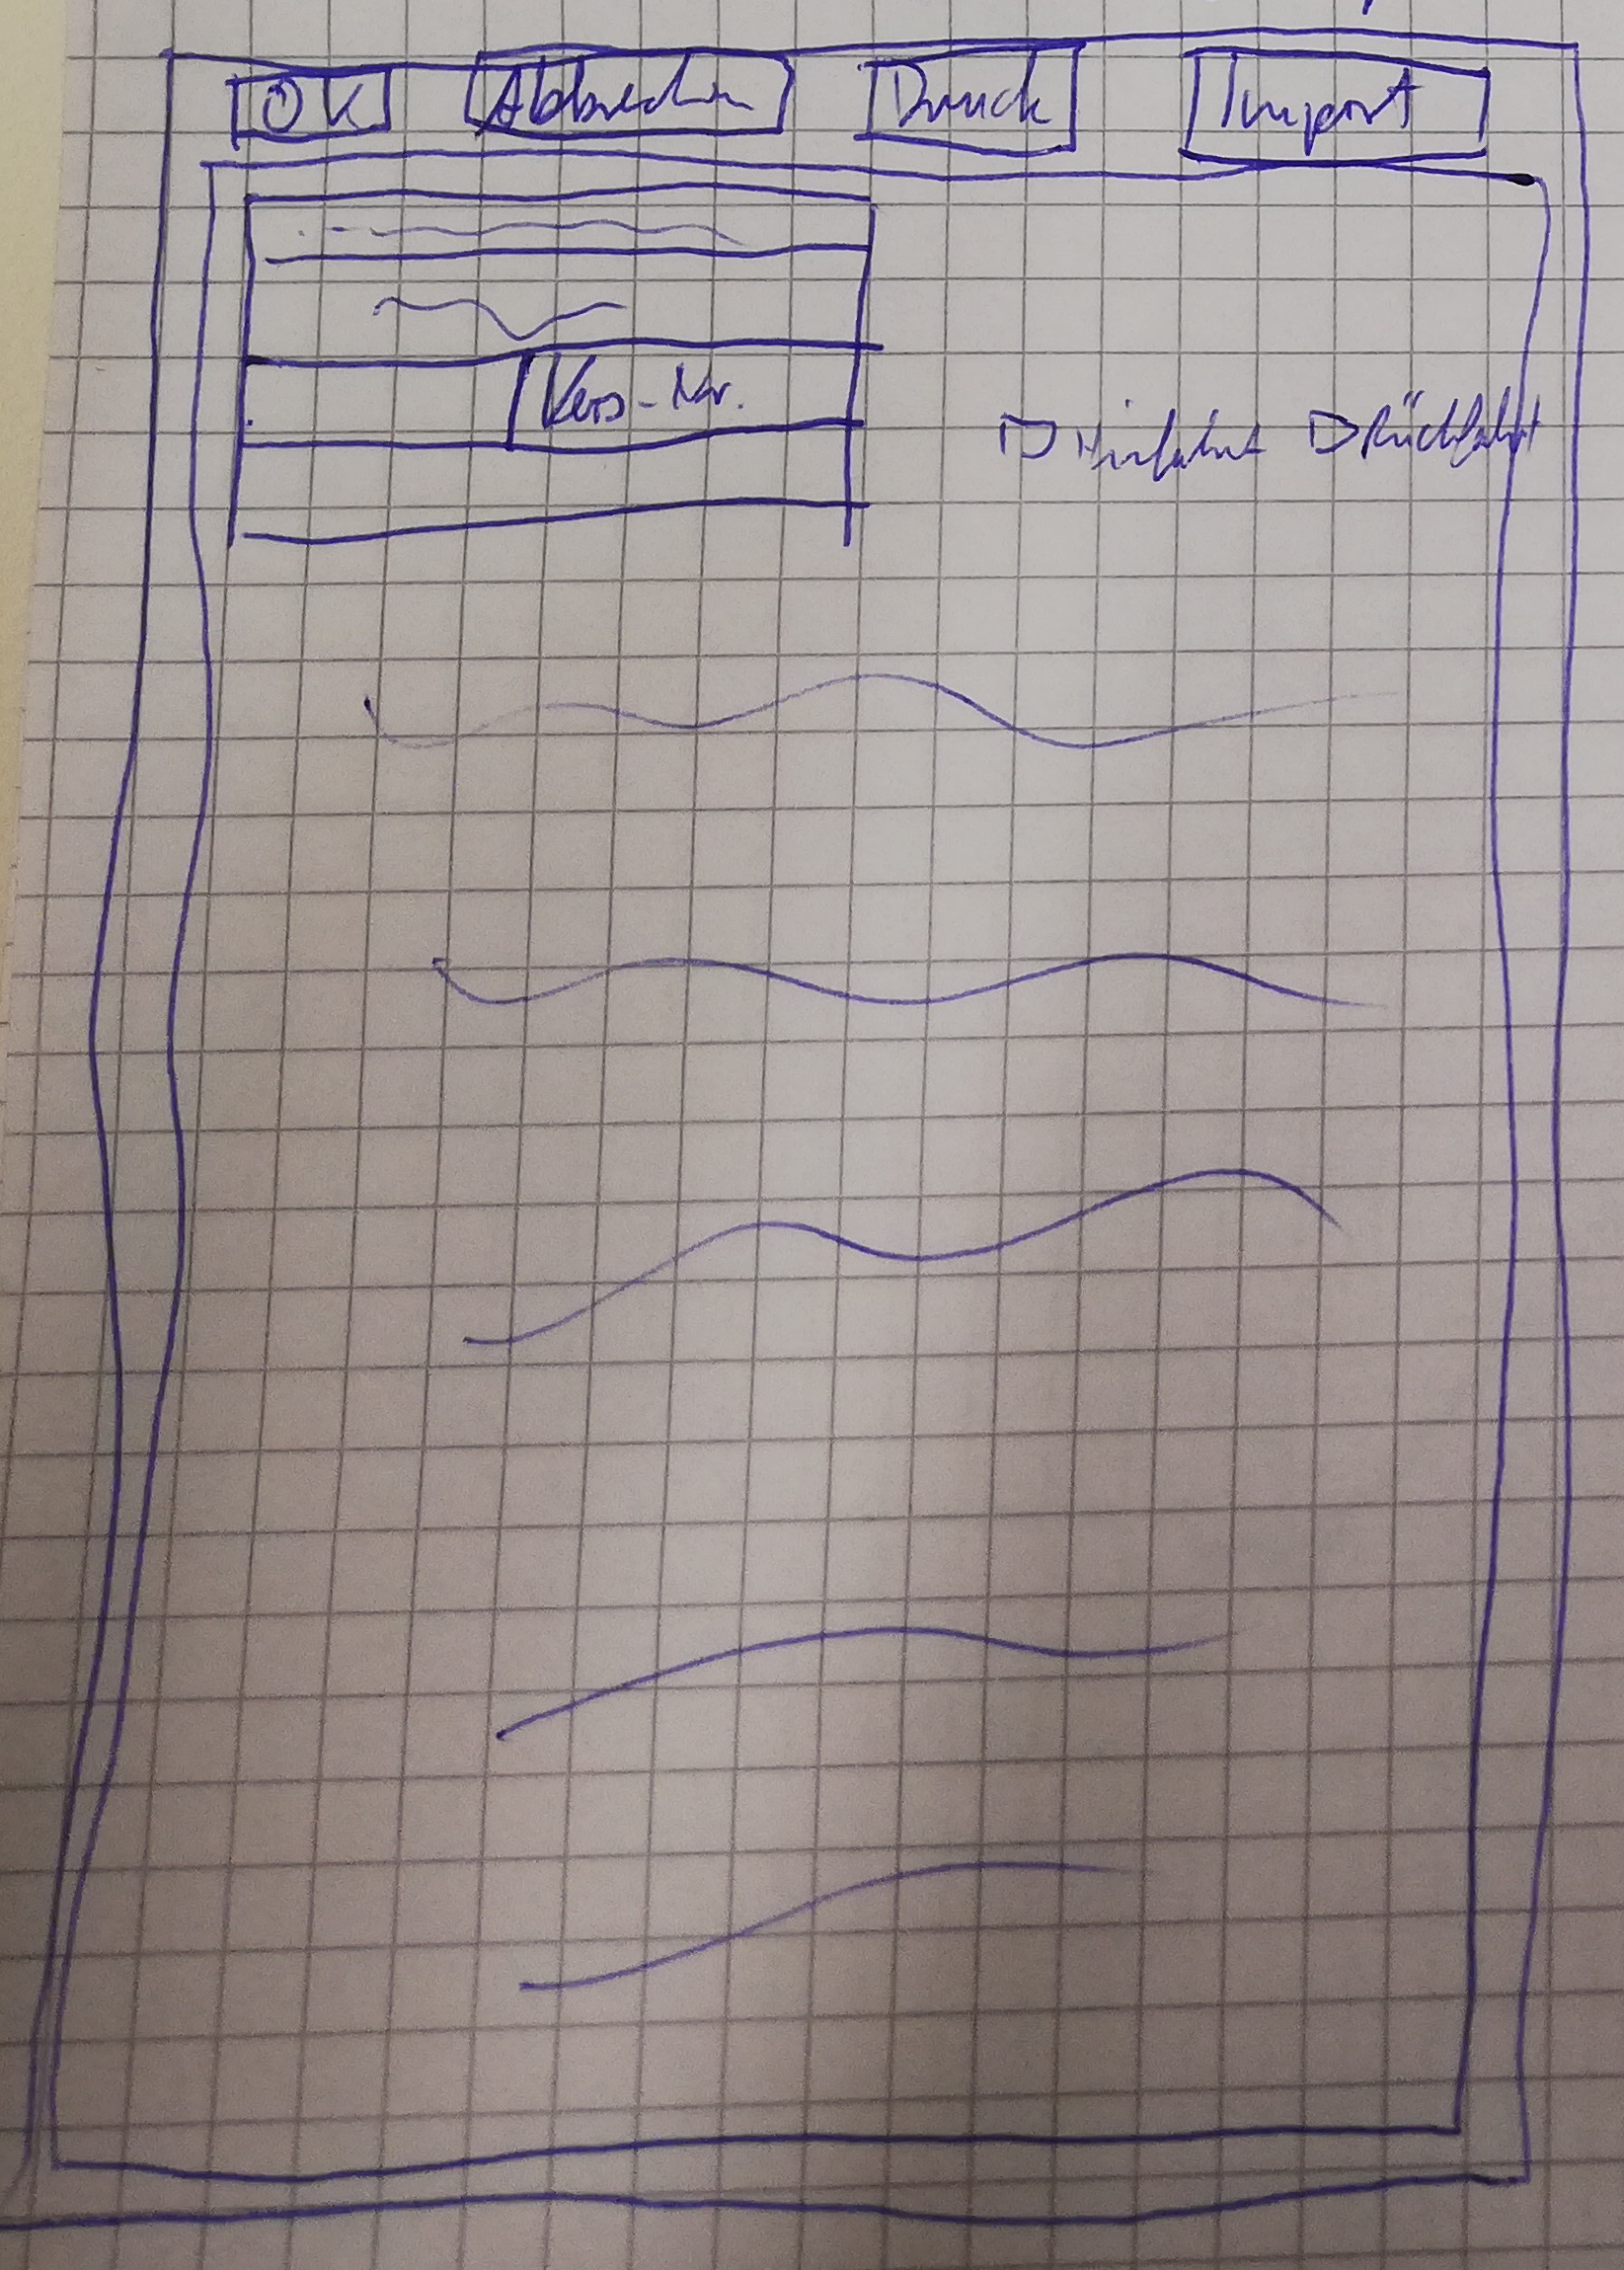 OK Abbrechen Druck Import
Vers-Nr.
Hinfahrt Rückfahrt